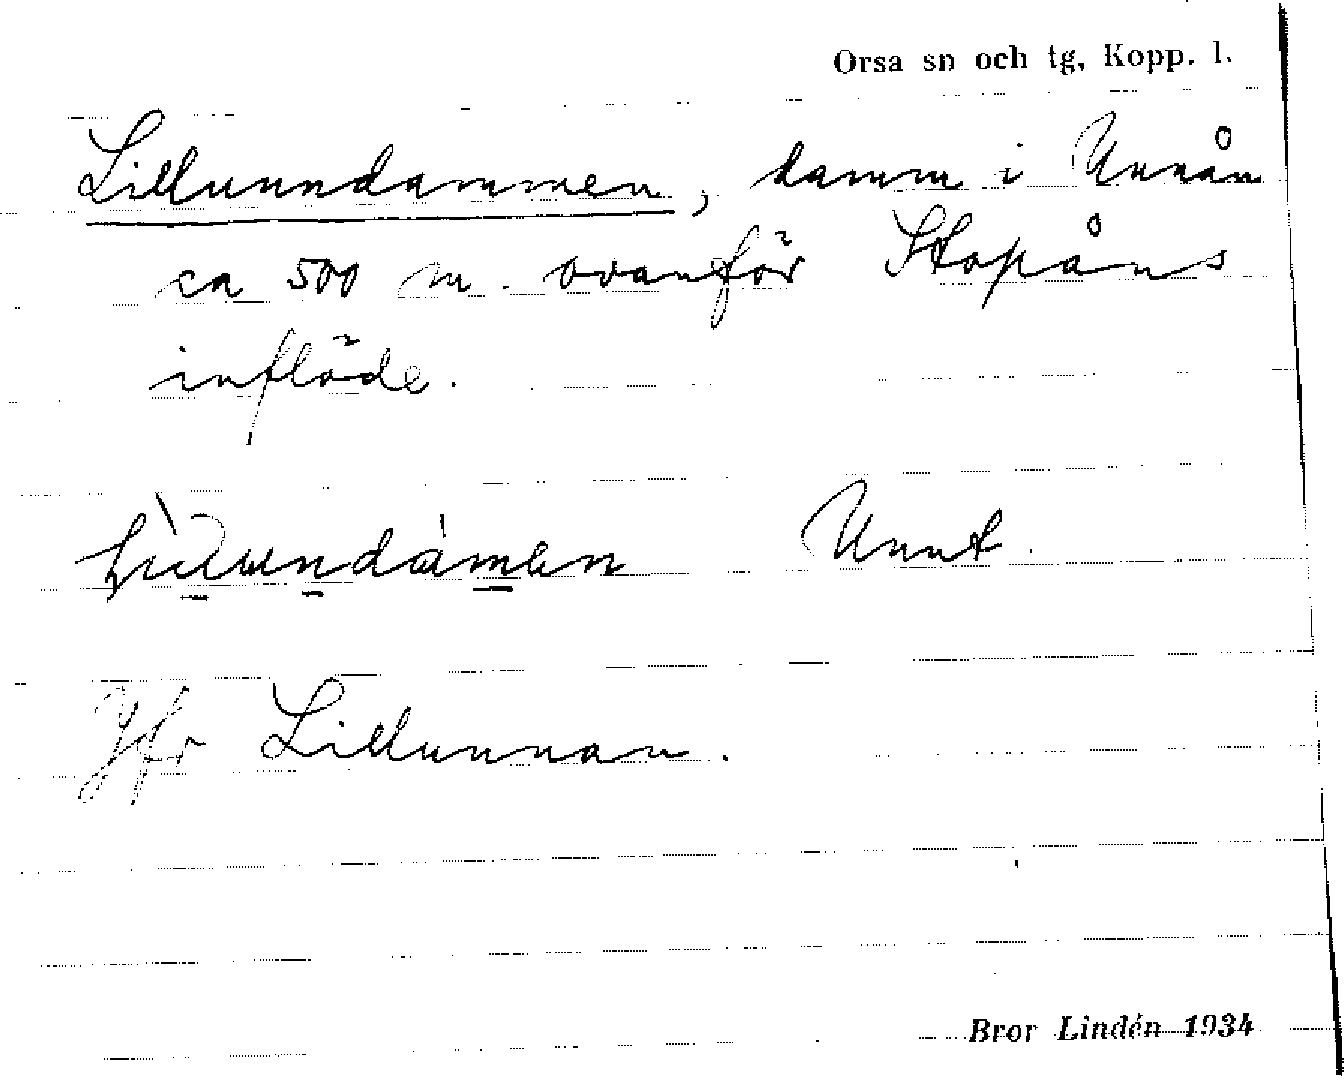 Orsa sn och tg, Kopp. l.
Lillunndammen, damm i Unnån
ca 500 m. ovanför Stopåns
inflöde.
Unnt.
Jfr Lillunnan.
Bror Lindén 1934